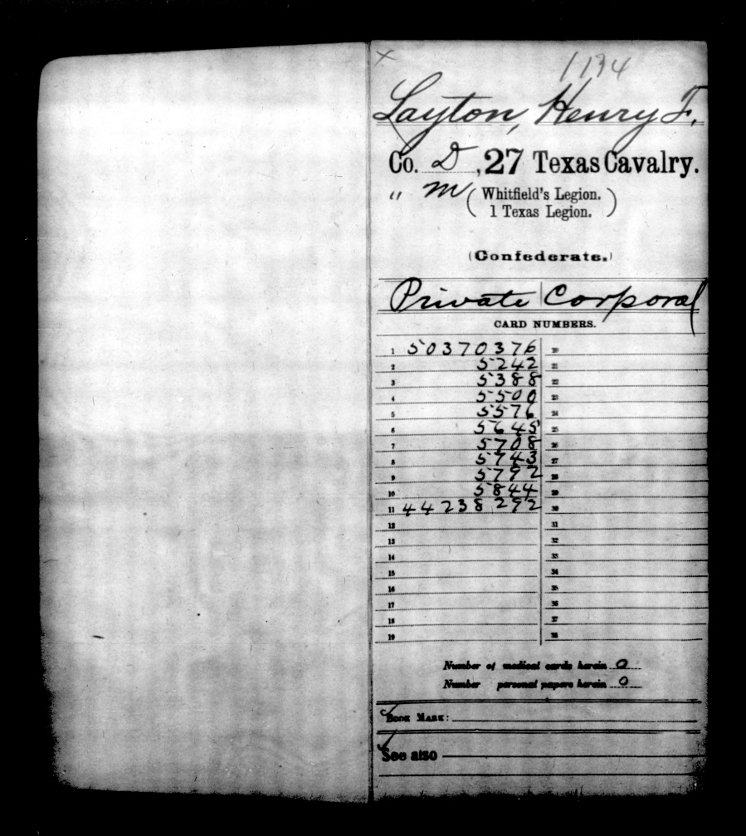 x
1134
Layton, Henry F.
Co. D, 27 Texas Cavalry.
" M ( Whitfield's Legion. )
( 1 Texas Legion. )
(Confederate.)
Private Corporal
CARD NUMBERS.
1 50370376 20
2 5242 21
3 5388 22
4 5500 23
5 5576 24
6 5645 25
7 5708 26
8 5743 27
9 5792 28
10 5844 29
11 44238292 30
12 31
13 32
14 33
15 34
16 35
17 36
18 37
19 38
Number of medical cards herein 0
Number personal papers herein 0
BOOK MARK:
See also